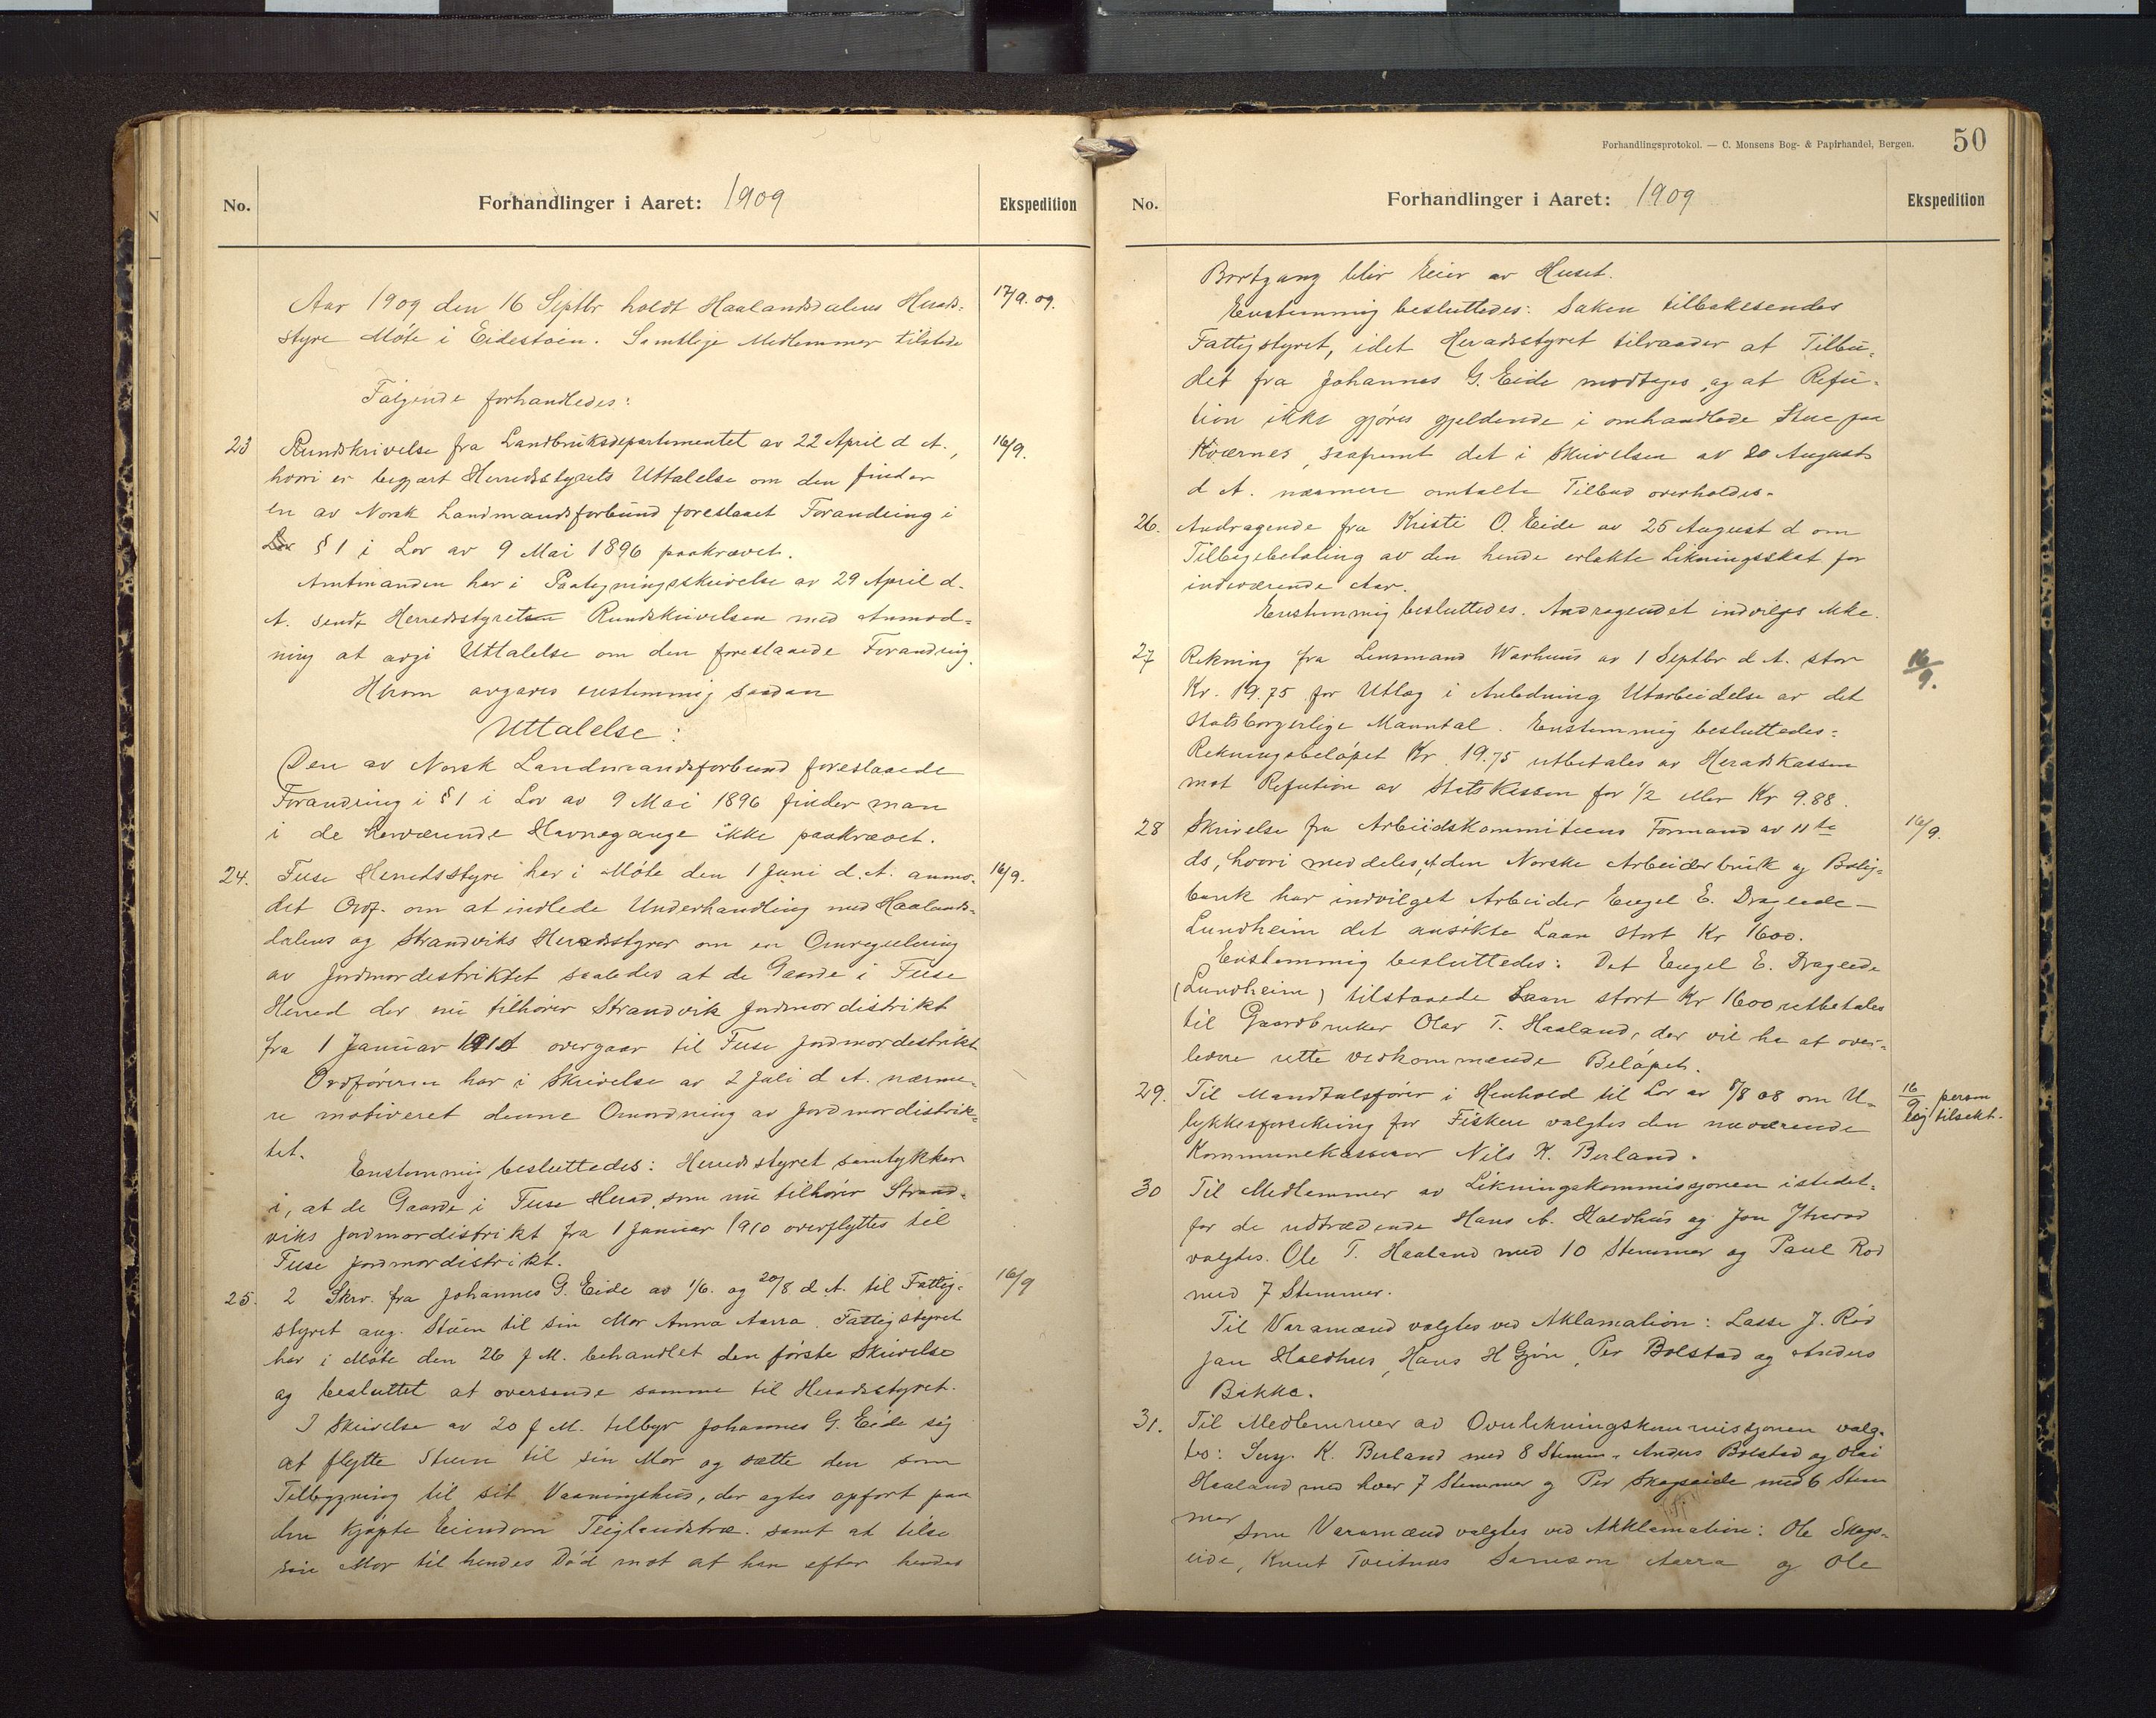 No.
Forhandlinger i Aaret: 1909
Ekspedition
Aar 1909 den 16 Septbr holdt Haalandsdalens Herads-
17/9.09.
styre Møte i Eidestøen. Samtlige Medlemmer tilstede
Følgende forhandledes:
23 Rundskrivelse fra Landbruksdepartementet av 22 April d A.,
16/9.
hvori er begjært Herredsstyrets Uttalelse om den finder
en av Norsk Landmandsforbund foreslaaet Forandring i
Lov § 1 i Lov av 9 Mai 1896 paakrævet.
Amtmanden har i Paategningsskrivelse av 29 April d.
A. sendt Herredsstyret Rundskrivelsen med Anmod-
ning at avgi Uttalelse om den foreslaaede Forandring.
Herom avgaves enstemmig saadan
Uttalelse:
Den av Norsk Landmandsforbund foreslaaede
Forandring i § 1 i Lov av 9 Mai 1896 finder man
i de herværende Havnegange ikke paakrævet.
24. Fuse Herredsstyre har i Møte den 1 Juni d. A. anmo-
16/9.
det Ordf. om at indlede Underhandling med Haalands-
dalens og Strandviks Heradsstyrer om en Omregulering
av Jordmordestriktet saaledes at de Gaarde i Fuse
Herred der nu tilhører Strandvik Jordmordistrikt
fra 1 Januar 1910 overgaar til Fuse Jordmordestrikt
Ordføreren har i Skrivelse av 2 Juli d A. nærme-
re motiveret denne Omordning av Jordmordistrik-
tet.
Enstemmig besluttedes: Herredsstyret samtykker
i, at de Gaarde i Fuse Herad, som nu tilhører Strand-
viks Jordmordistrikt fra 1 Januar 1910 overflyttes til
Fuse Jordmordistrikt.
25. 2 Skrv. fra Johannes G. Eide av 1/6. og 20/8 d A. til Fattig-
16/9
styret ang. Stuen til sin Mor Anna Aarra. Fattigstyret
har i Møte den 26 f M. behandlet den første Skrivelse
og besluttet at oversende samme til Heradsstyret.
I Skrivelse av 20 f M. tilbyr Johannes G. Eide sig
at flytte Stuen til sin Mor og sætte den som
Tilbygning til sit Vaaningshus, der agtes opført paa
den kjøpte Eiendom Teiglandstræ. samt at tilse
sin Mor til hendes Død mot at han efter hendes
Forhandlingsprotokol. — C. Monsens Bog- & Papirhandel, Bergen.
50
No.
Forhandlinger i Aaret: 1909
Ekspedition
Bortgang blir Eier av Huset.
Enstemmig besluttedes: Saken tilbakesendes
Fattigstyret, idet Heradsstyret tilraader at Tilbu-
det fra Johannes G. Eide modtages, og at Refu-
tion ikke gjøres gjeldende i omhandlede Stue paa
Kværnes, saafremt det i Skrivelsen av 20 August
d A. nærmere omtalte Tilbud overholdes.
26. Andragende fra Kristi O. Eide av 25 August d om
Tilbagebetaling av den hende erlakte Likningsskat for
indeværende Aar.
Enstemmig besluttedes. Andragendet indvilges ikke.
27 Rekning fra Lensmand Warhuus av 1 Septbr d A. stor
16/9.
Kr. 19.75 for Utlæg i Anledning Utarbeidelse av det
statsborgerlige Manntal. Enstemmig besluttedes:
Rekningsbeløpet Kr. 19.75 utbetales av Heradskassen
mot Refution av Statskassen for 1/2 eller Kr 9.88.
28 Skrivelse fra Arbeidskommiteens Formand av 11te
16/9.
ds, hvori meddeles, at den Norske Arbeiderbruk og Bolig-
bank har indvilget Arbeider Engel E. Drageide-
Lundheim det ansøkte Laan stort Kr 1600.
Enstemmig besluttedes: Det Engel E. Drageide
(Lundheim) tilstaaede Laan stort Kr 1600 utbetales
til Gaardbruker Olav T. Haaland, der vil ha at over-
levere rette vedkommende Beløpet.
29. Til Mandtalsfører i Henhold til Lov av 8/8 08 om U-
16/9 person
lykkesforsikring for Fiskere valgtes den nuværende
lig tilsekt.
Kommunekasserer Nils K. Berland.
30 Til Medlemmer av Likningskommissjonen istedet-
for de udtrædende Hans A. Holdhus og Jon
valgtes. Ole T. Haaland med 10 Stemmer og Paul Rød
med 7 Stemmer.
Til Varamænd valgtes ved Aklamation: Lasse J. Rød
Jan Holdhus, Hans H Gjøn, Per Bolstad og Anders
Bakke.
31. Til Medlemmer av Overlikningskommissjonen valg-
tes: K. Berland med 8 Stemm. Anders Bolstad og Olai
Haaland med hver 7 Stemmer og Per Skogseide med 6 Stem
mer
Som Varamænd valgtes ved Akklamation: Ole Skogs-
eide, Knut Tveitnes Samson Aarra og Ole